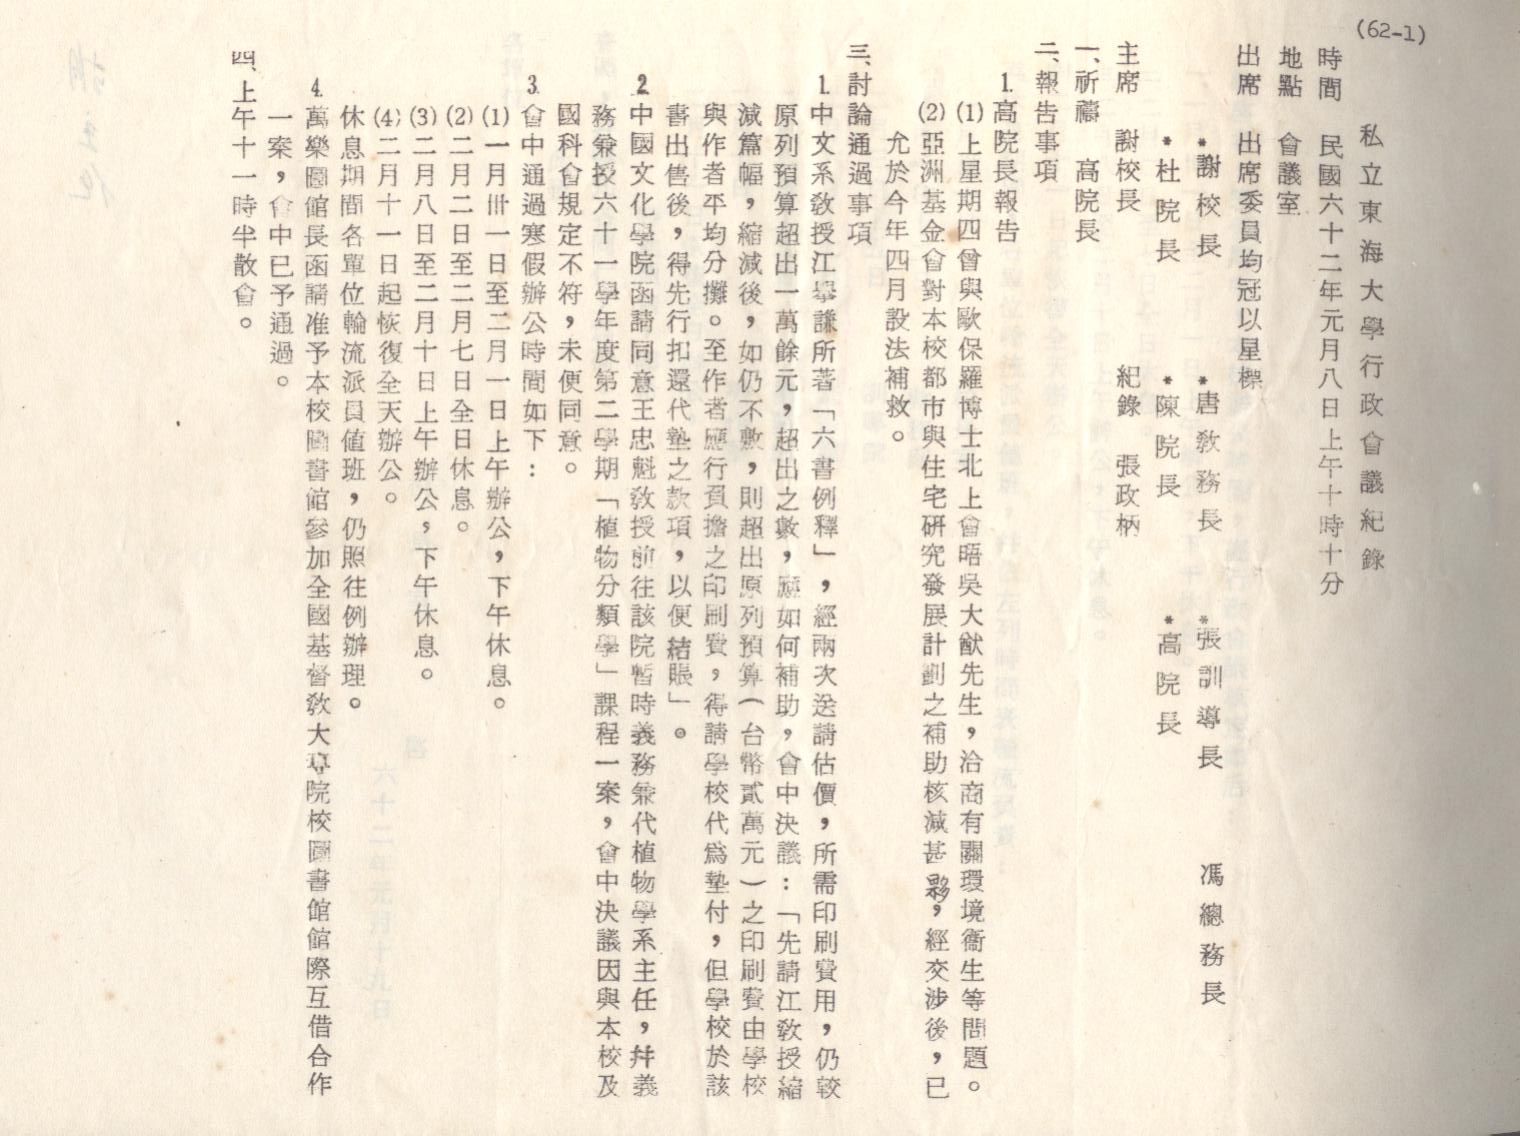 (62-1)
私立東海大學行政會議紀錄
時間　民國六十二年元月八日上午十時十分
地點　會議室
出席　出席委員均冠以星標
*謝校長　*唐敎務長　*張訓導長　馮總務長
*杜院長　*陳院長　*高院長
主席　謝校長　紀錄　張政柄
一、祈禱　高院長
二、報告事項
1.高院長報告
(1)上星期四曾與歐保羅博士北上會晤吳大猷先生，洽商有關環境衞生等問題。
(2)亞洲基金會對本校都市與住宅硏究發展計劃之補助核減甚夥，經交涉後，已
允於今年四月設法補救。
三、討論通過事項
1.中文系敎授江擧謙所著「六書例釋」，經兩次送請估價，所需印刷費用，仍較
原列預算超出一萬餘元，超出之數，應如何補助，會中決議：「先請江敎授縮
減篇幅，縮減後，如仍不敷，則超出原列預算(台幣貳萬元)之印刷費由學校
與作者平均分攤。至作者應行負擔之印刷費，得請學校代爲墊付，但學校於該
書出售後，得先行扣還代墊之款項，以便結賬」。
2.中國文化學院函請同意王忠魁敎授前往該院暫時義務兼代植物學系主任，幷義
務兼授六十一學年度第二學期「植物分類學」課程一案，會中決議因與本校及
國科會規定不符，未便同意。
3.會中通過寒假辦公時間如下：
(1)一月卅一日至二月一日上午辦公，下午休息。
(2)二月二日至二月七日全日休息。
(3)二月八日至二月十日上午辦公，下午休息。
(4)二月十一日起恢復全天辦公。
休息期間各單位輪流派員値班，仍照往例辦理。
4.萬樂圖館長函請准予本校圖書館參加全國基督敎大專院校圖書館館際互借合作
一案，會中已予通過。
四、上午十一時半散會。